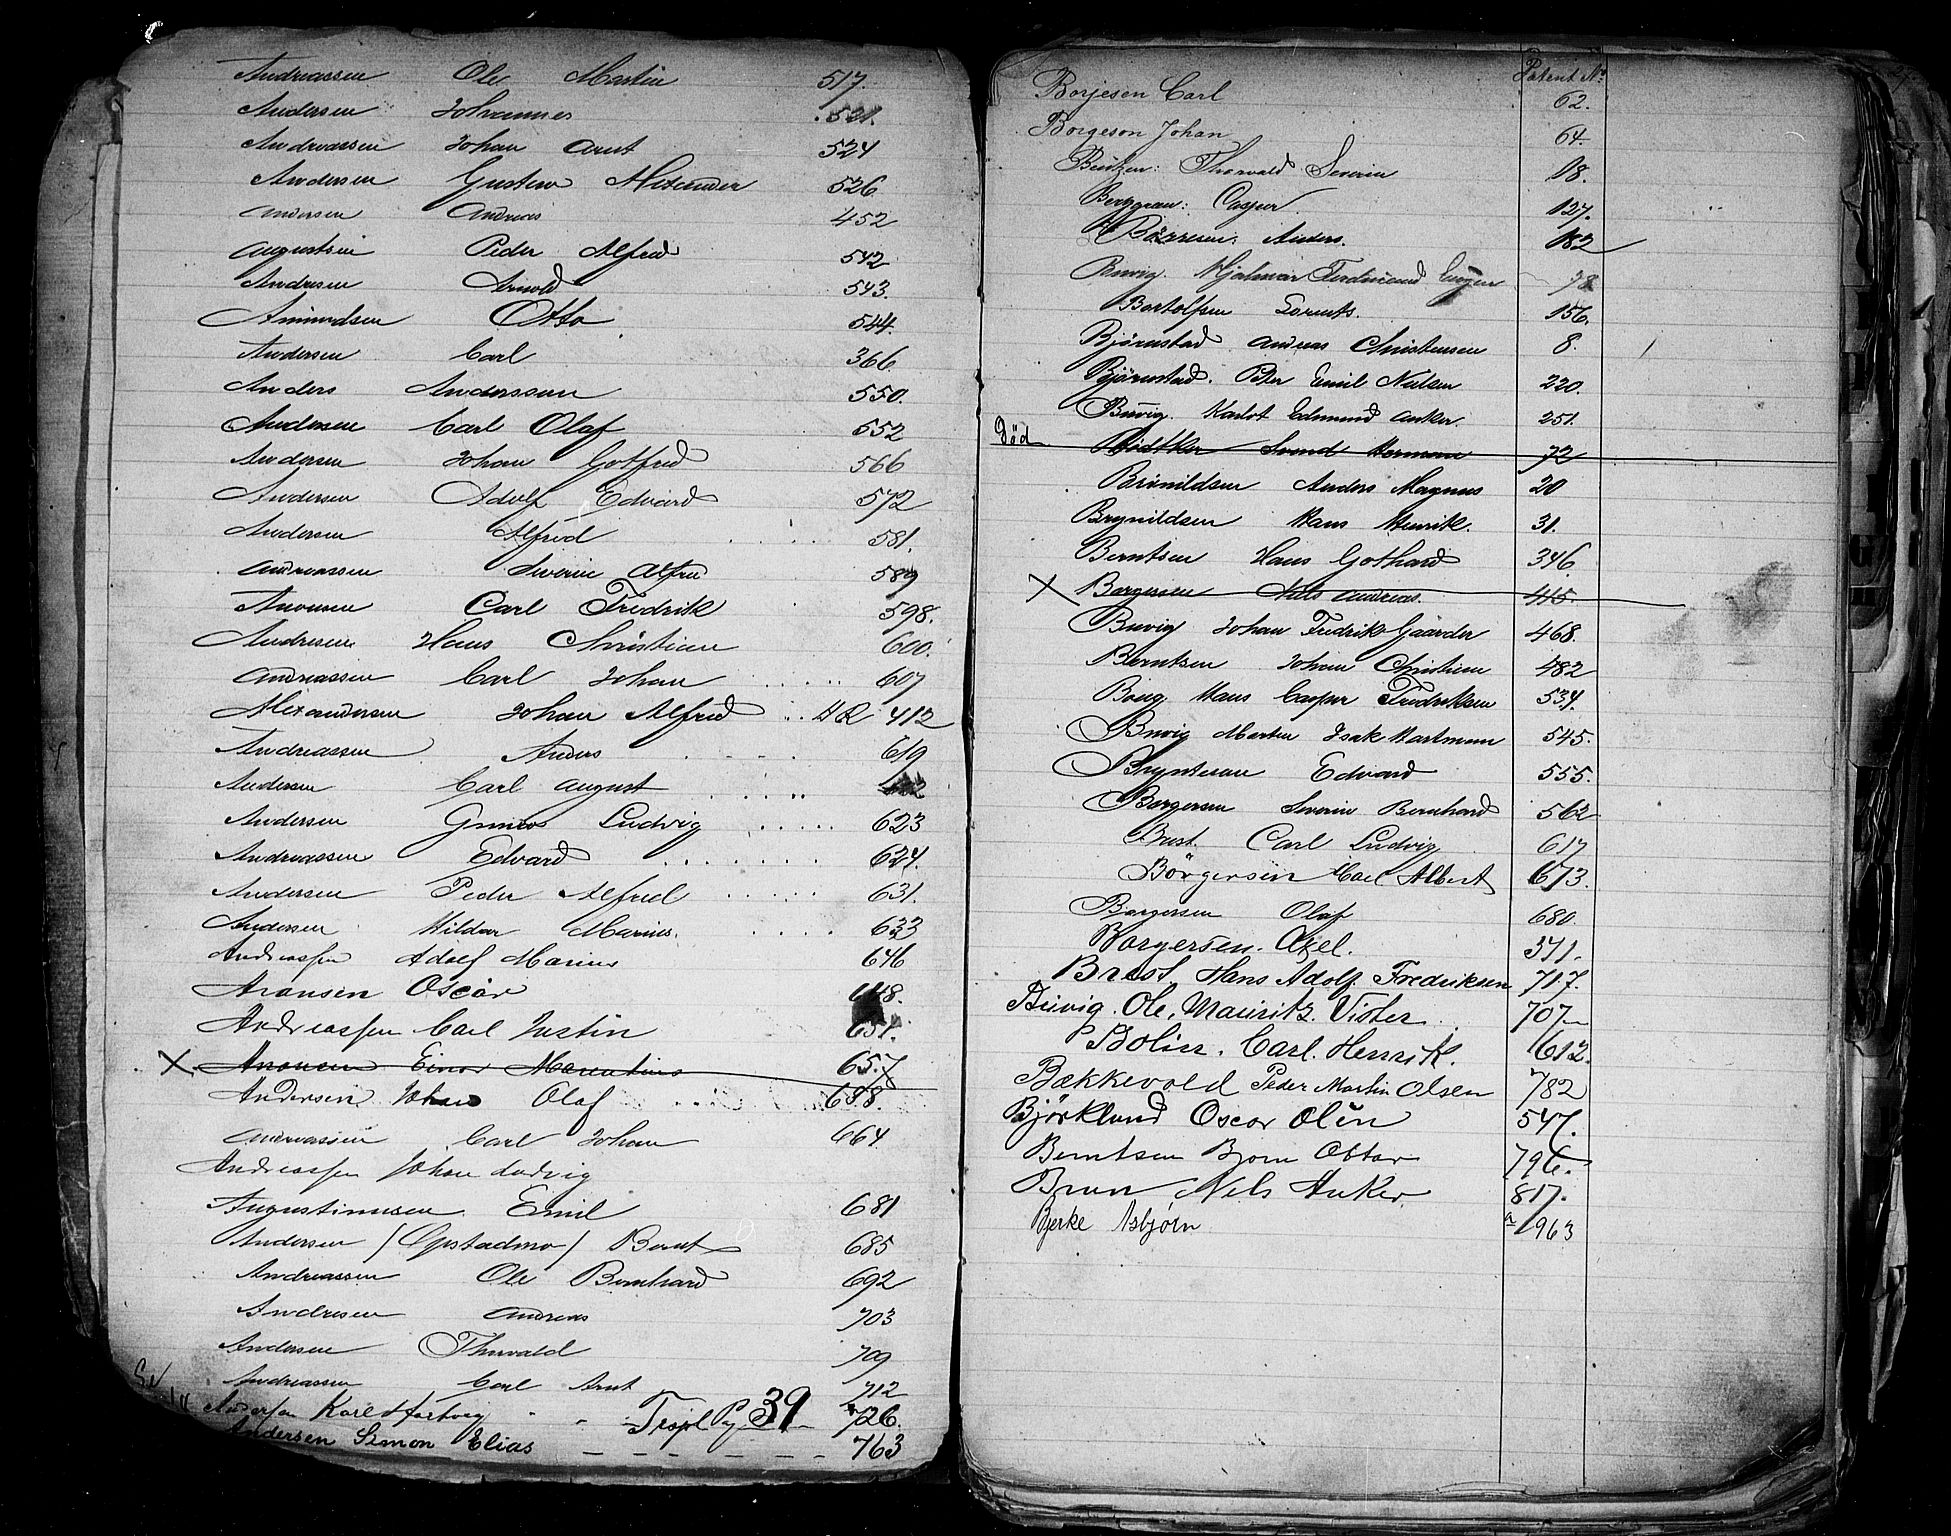 Andreassen Ole Martin 517.
Andersen Johannes 521.
Andreassen Johan Arnt 524
Andersen Gustav Alexander 526
Andersen Andreas 452
Augustsen Peder Alfred 542
Andresen Arnold 543.
Amundsen Otto 544.
Andersen Carl 366
Anders Anderssen 550.
Andersen Carl Olaf 552
Andersen Johan Gotfred 566
Andersen Adolf Edvard 572
Andersen Alfred 581.
Andreassen Severin Alfred 589
Aronsen Carl Fredrik 598.
Andresen Hans Christian 600.
Andreassen Carl Johan 607
Alexandersen Johan Alfred AR 412
Andreassen Anders 619
Andersen Carl August
Andersen Ludvig 623
Andreassen Edvard 624.
Andersen Peder Alfred 631.
Andersen Hildar Marius. 633
Andreassen Adolf Marius 646
Aronsen Oscar 648.
Andreassen Carl Justin 651.
X Aronsen Einar Marentius 657
Andersen Johan Olaf 658.
Andreassen Carl Johan 664
Andreassen Johan Ludvig
Augustinusen Emil 681
Andersen / Opstadmo / Bernt 685
Andreassen Ole Bernhard 692
Andresen Andreas 703
Andersen Thorvald 709
Andreassen Carl Arnt 712
Andersen Karl Hartvig Pag 39 726.
Andersen Simon Elias 763
Patent No
Borjesen Carl 62.
Borgeson Johan 64.
Bentzen: Thorvald Severin 18.
Berggren: Casper 127.
Børresen: Anders. 182
Buvig Hjalmar Ferdinand Eugen 78
Bartolfsen Lorents. 156.
Bjørnstad Andreas Christensen 8.
Bjørnstad. Peter Emil Nielsen 220.
Buvig. Karlot Edmund Anker. 251.
Død Bødtker Svend Herman 72
Brynildsen Anders Magnus 20
Brynildsen Hans Henrik. 31.
Berntsen Hans Gothard 346
X Borgersen Nils Andreas. 415.
Buvig Johan Fredrik Gaarder 468.
Berntsen Johan Christian 482
Hans Casper Fredriksen 534.
Buvig Martin Isak Hartmann 545.
Bryntesen Edvard 555.
Borgersen Severin Bernhard 562
Brust. Carl Ludvig 617
Börgersen Karl Albert 673.
Borgersen Olaf 680.
Borgersen. Axel. 371.
Brust, Hans Adolf Fredriksen 717.
Buvig. Ole, Mauritz. Victer 707
Bolin. Carl. Henrik. 612.
Bækkevold Peder Martin Olsen 782
Björklund Oscar Olin 547.
Berntsen Bjorn Ottar 796.
Brun Nils Anker 817.
Bjerke Asbjørn 963